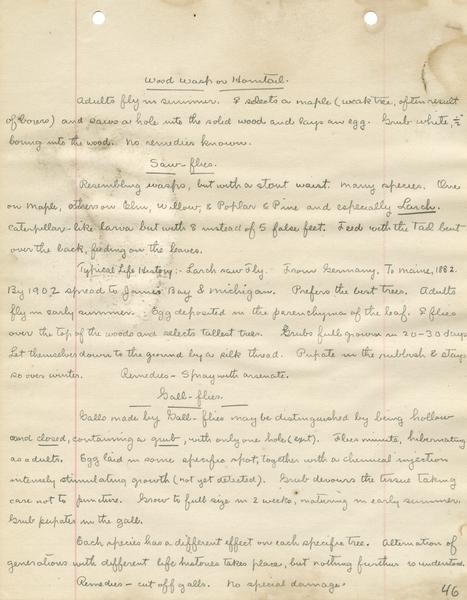 Wood Wasp or Horntail.
Adults fly in summer. ♀ selects a maple (weak tree, often result
of borers) and saws a hole into the solid wood and lays an egg. Grub white, ½"
boring into the wood. No remedies known.
Saw-flies.
Resembling wasps, but with a stout waist. Many species. One
on Maple, others on Elm, Willow, & Poplar & Pine and especially Larch.
Caterpillar-like larva but with 8 instead of 5 false feet. Feed with the tail bent
over the back, feeding on the leaves.
Typical Life History:- Larch saw Fly. From Germany. To Maine, 1882.
By 1902 spread to James Bay & Michigan. Prefers the best trees. Adults
fly in early summer. Egg deposited in the parenchyma of the leaf. ♀ flies
over the top of the woods and selects tallest trees. Grubs full grown in 20-30 days
Let themselves down to the ground by a silk thread. Pupate in the rubbish & stays
so over winter. Remedies - Spray with arsenate.
Gall-flies.
Galls made by Gall-flies may be distinguished by being hollow
and closed, containing a grub, with only one hole (exit). Flies minute, hibernating
as adults. Egg laid in some specific spot, together with a chemical injection
intensely stimulating growth (not yet detected). Grub devours the tissue taking
care not to puncture. Grow to full size in 2 weeks, maturing in early summer.
Grub pupates in the gall.
Each species has a different effect on each specific tree. Alternation of
generations with different life histories takes place, but nothing further is understood.
Remedies - cut off galls. No special damage.
46